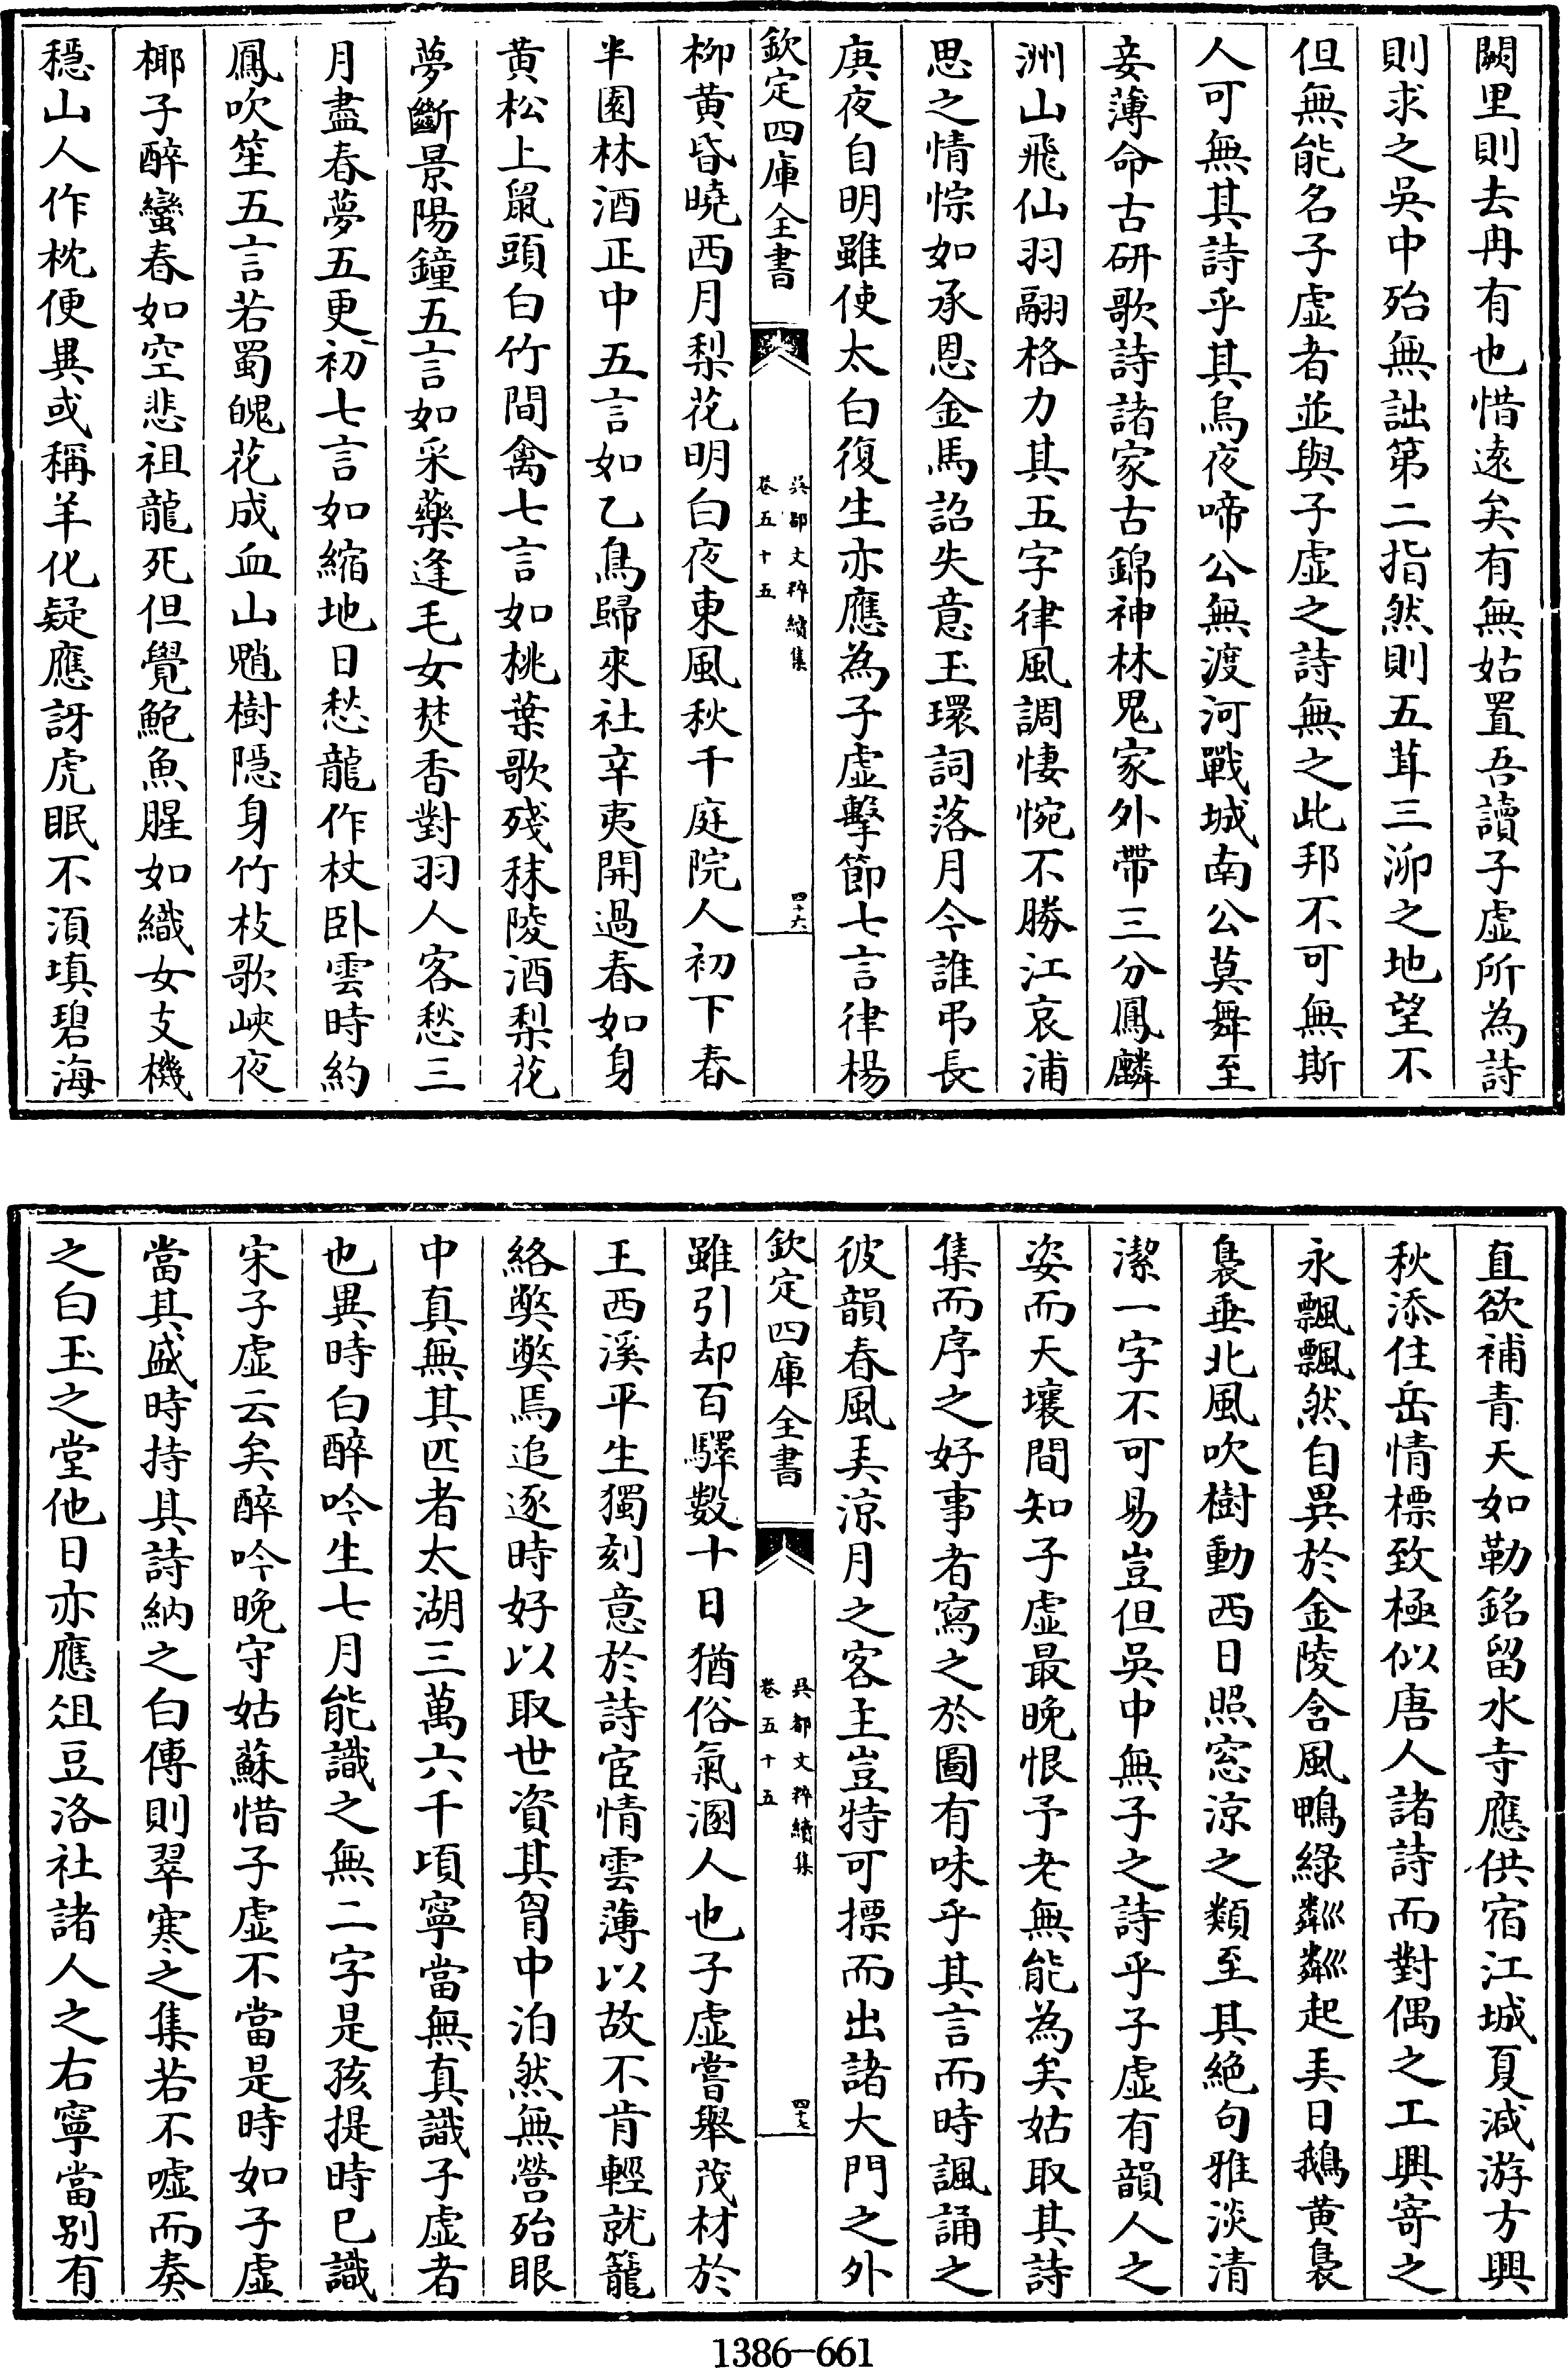 闕里則去冉有也惜逺矣有無姑置吾讀子虚所為詩
則求之吳中殆無詘第二指然則五茸三泖之地望不
但無能名子虚者並與子虚之詩無之此邦不可無斯
人可無其詩乎其烏夜啼公無渡河戰城南公莫舞至
妾薄命古研歌詩諸家古錦神林鬼家外帶三分鳳麟
洲山飛仙羽翮格力其五字律風調悽惋不勝江哀浦
思之情悰如承恩金馬詔失意玉環詞落月今誰弔長
庚夜自明雖使太白復生亦應為子虚擊節七言律楊
欽定四庫全書
吳都文粹續集
卷五十五
四十六
栁黄昏曉西月梨花明白夜東風秋千庭院人初下春
半園林酒正中五言如乙鳥歸來社辛夷開過春如身
黄松上鼠頭白竹間禽七言如桃葉歌殘秣陵酒梨花
夢斷景陽鐘五言如采藥逢毛女焚香對羽人客愁三
月盡春夢五更初七言如縮地日愁龍作杖卧雲時約
鳳吹笙五言若蜀魄花成血山魈樹隠身竹枝歌峽夜
椰子醉蠻春如空悲祖龍死但覺鮑魚腥如織女支機
穏山人作枕便異或稱羊化疑應訝虎眠不湏填碧海
直欲補青天如勒銘留水寺應供宿江城夏减游方興
秋添住岳情標致極似唐人諸詩而對偶之工興寄之
永飄飄然自異於金陵含風鴨緑粼粼起弄日鵝黄裊
裊垂北風吹樹動西日照窓涼之類至其絶句雅淡清
潔一字不可易豈但吳中無子之詩乎子虚有韻人之
姿而天壤間知子虚最晚恨予老無能為矣姑取其詩
集而序之好事者寫之於圖有味乎其言而時諷誦之
彼韻春風弄涼月之客主豈特可摽而出諸大門之外
欽定四庫全書
吳都文粹續集
卷五十五
四十七
雖引却百驛數十日猶俗氣溷人也子虚嘗舉茂材於
王西溪平生獨刻意於詩宦情雲薄以故不肯輕就籠
絡獘獘焉追逐時好以取世資其胷中泊然無營殆眼
中真無其匹者太湖三萬六千頃寧當無真識子虚者
也異時白醉吟生七月能識之無二字是孩提時已識
宋子虚云矣醉吟晚守姑蘇惜子虚不當是時如子虚
當其盛時持其詩納之白傅則翠寒之集若不嘘而奏
之白玉之堂他日亦應俎豆洛社諸人之右寧當别有
1386-661